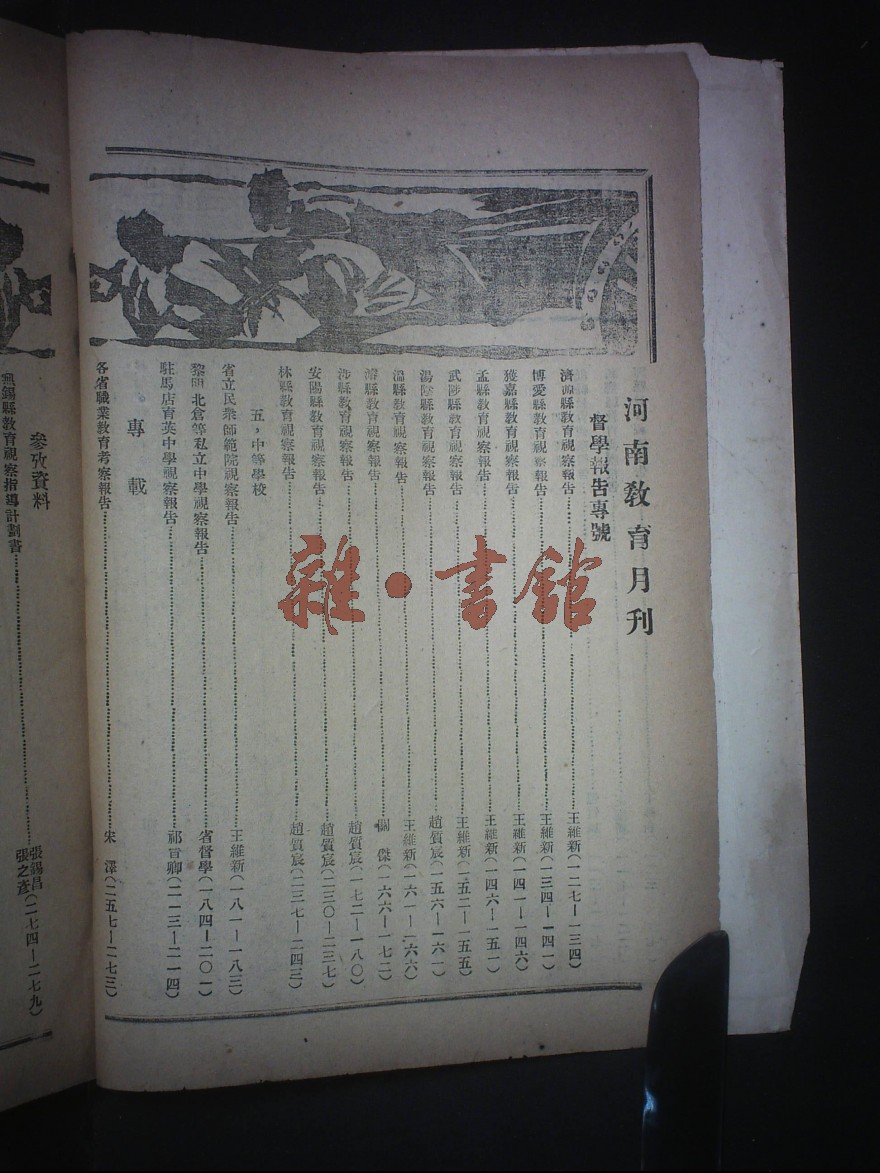 河南教育月刊
督學報告專號
濟源縣教育視察報告……王維新(一二七—一三四)
博愛縣教育視察報告……王維新(一三四—一四一)
獲嘉縣教育視察報告……王維新(一四一—一四六)
孟縣教育視察報告……王維新(一四六—一五一)
武陟縣教育視察報告……王維新(一五二—一五五)
湯陰縣教育視察報告……趙質宸(一五六—一六一)
溫縣教育視察報告……王維新(一六一—一六六)
縣教育視察報告……關 傑(一六六—一七二)
涉縣教育視察報告……趙質宸(一七二—一八〇)
安陽縣教育視察報告……趙質宸(二三〇—二三七)
林縣教育視察報告……趙質宸(二三七—二四三)
五,中等學校
省立民衆師範院視察報告……王維新(一八一—一八三)
黎明北倉等私立中學視察報告……省督學(一八四—二〇一)
駐馬店育英中學視察報告……祁 卿(二一三—二一四)
專載
各省職業教育考察報告……朱 澤(二五七—二七三)
參攷資料
無錫縣教育視察指導計劃書……張錫昌 張之彥(二七四—二七九)
雜·書舘